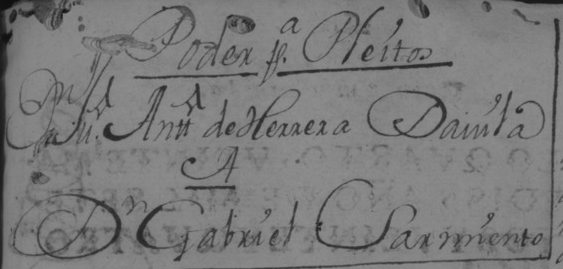 Poder pa. Pleitos
Antt de Herrera Dauila
A
Dn Gabriel Sarmiento